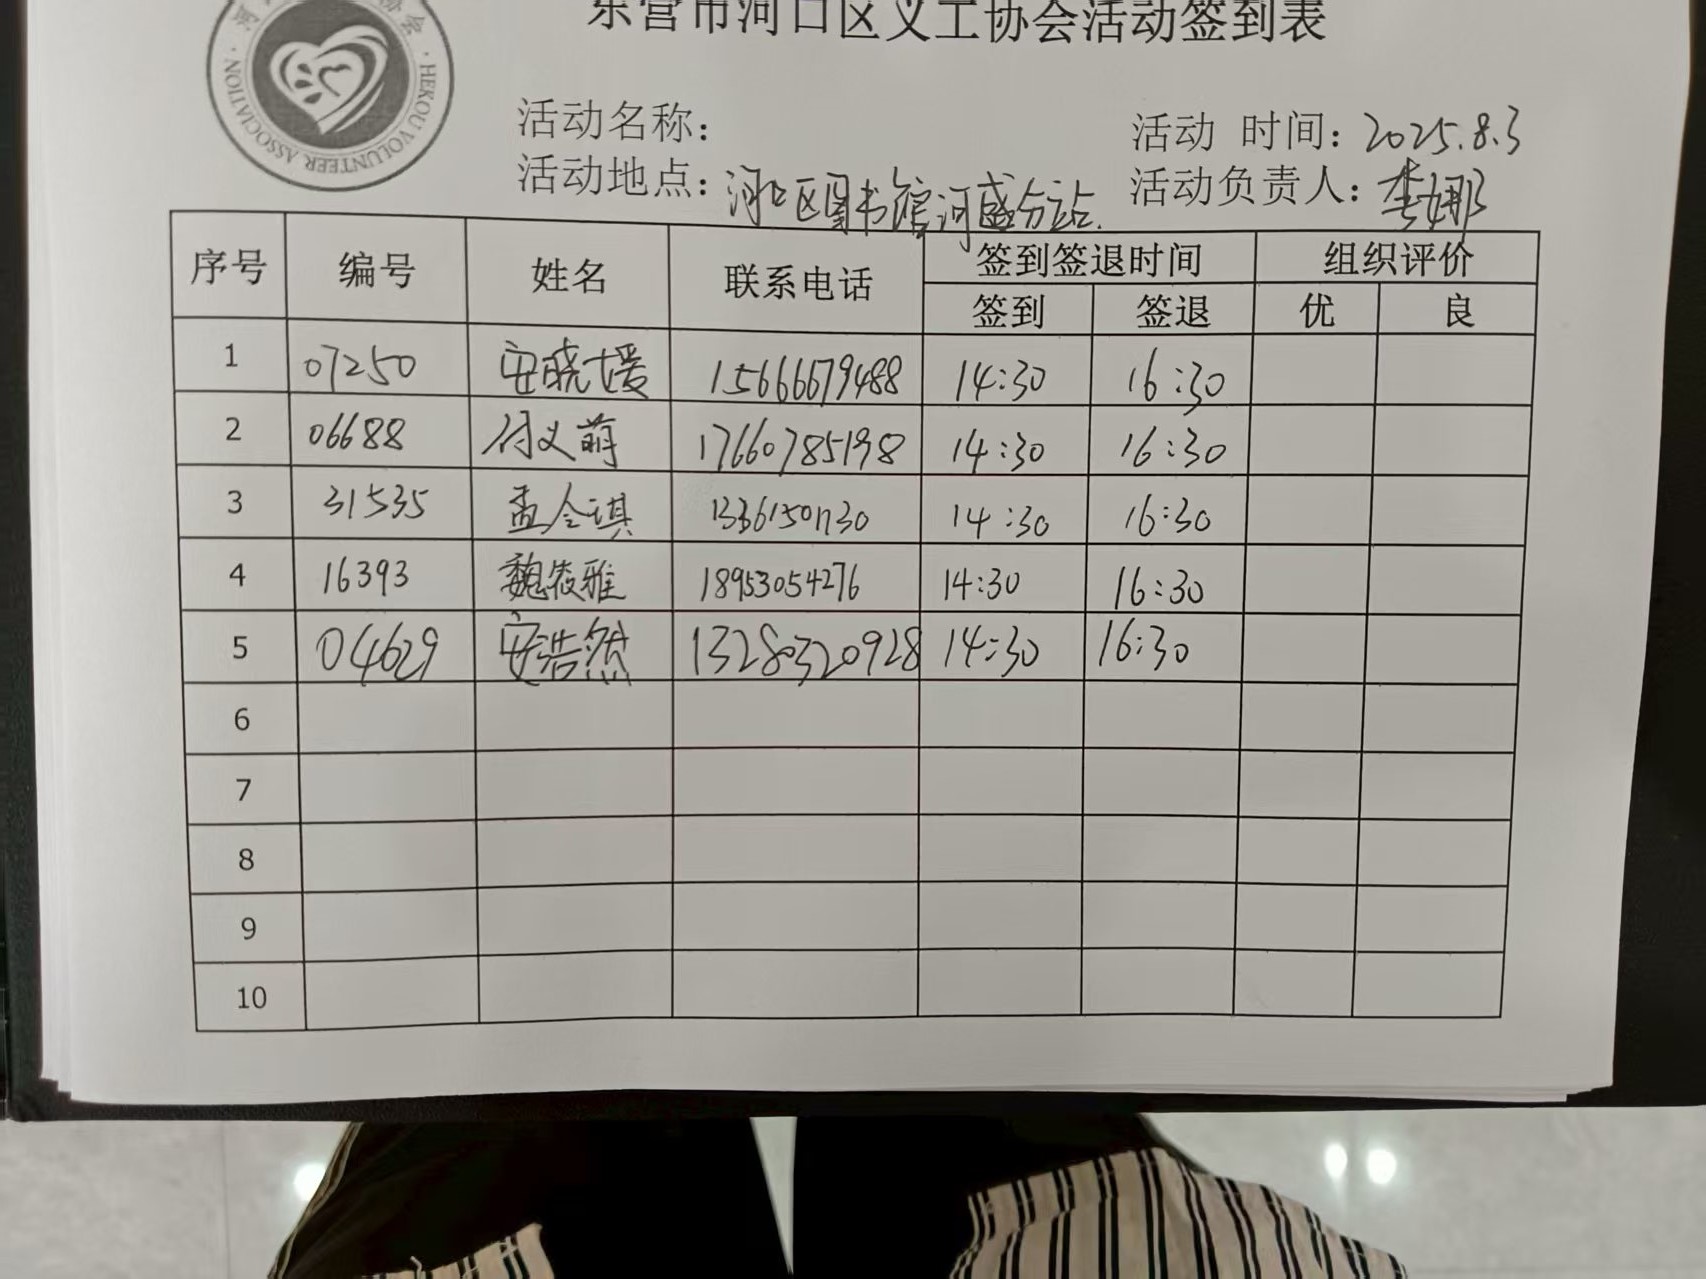 东营市河口区义工协会活动签到表
HEKOU VOLUNTEER ASSOCIATION
活动名称： 活动 时间：2025.8.3
活动地点：河口区图书馆河盛分站. 活动负责人：李娜
序号 编号 姓名 联系电话 签到签退时间 组织评价
签到 签退 优 良
1 07250 安晓媛 15666679488 14:30 16:30
2 06688 付义萌 17660785198 14:30 16:30
3 31535 孟令琪 13361501730 14:30 16:30
4 16393 魏筱雅 18953054276 14:30 16:30
5 04629 安浩然 13280320928 14:30 16:30
6
7
8
9
10